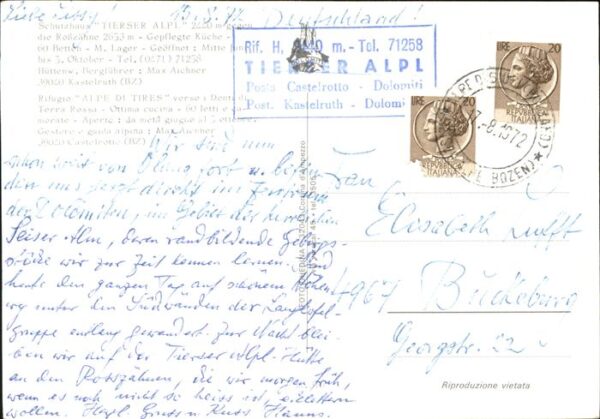 Liebe Lissy! 13.8.72 Deutschland!
Schutzhaus "TIERSER ALPL" 2440 m gegen
die Roßzähne 2653 m - Gepflegte Küche -
60 Betten - M. Lager - Geöffnet: Mitte Juni
bis 5. Oktober - Tel. (0471) 71258
Hüttenw. Bergführer: Max Aichner
39020 Kastelruth (BZ)
Rifugio "ALPE DI TIRES" verso i Denti di
Terra Rossa - Ottima cucina - 60 letti e
Aperto: da metà giugno al 5 ottobre
Gestore e guida alpina: Max Aichner
39020 Castelrotto (BZ)
Rif. H. 2440 m. - Tel. 71258
TIERSER ALPL
Posta Castelrotto - Dolomiti
Post. Kastelruth - Dolomiten
LIRE 20
REPUBBLICA ITALIANA
LIRE 20
REPUBBLICA ITALIANA
-8.1972
BOZEN
Wir sind nun
schon weit von fort u.
uns jetzt direkt im
den Dolomiten, im Gebiet der
Seiser Alm, deren randbildende Gebirgs-
wir zur Zeit kennen lernen. Sind
heute den ganzen Tag auf schönem Höhen
weg unter den Südwänden der Langkofel-
gruppe entlang gewandert. Zur Nacht blei-
ben wir auf der Tierser Alpl Hütte
an den Rosszähnen, die wir morgen früh,
wenn es noch nicht so heiss ist, erklettern
wollen. Herzl. Gruss u. Kuss Hanns.
Frau
Elisabeth Lufft
4967 Bückeburg
Georgstr. 22
Riproduzione vietata